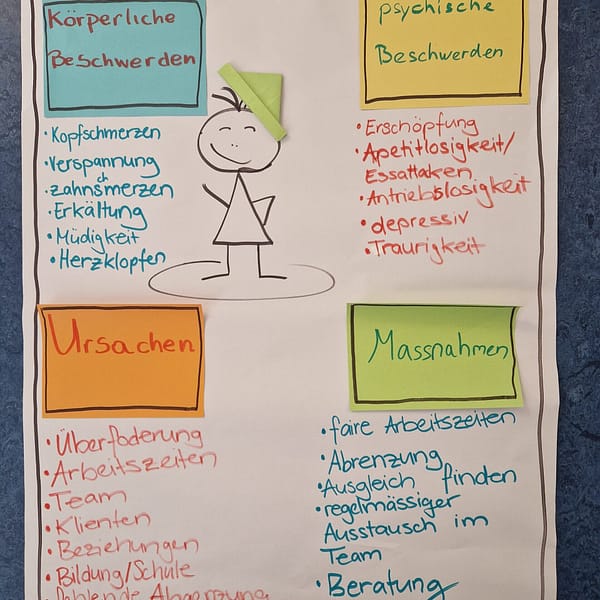 Körperliche
Beschwerden
• Kopfschmerzen
• Verspannung
• zahnsmerzen
ch
• Erkältung
• Müdigkeit
• Herzklopfen
psychische
Beschwerden
• Erschöpfung
• Apetitlosigkeit/
Essattaken
• Antriebslosigkeit
• depressiv
• Traurigkeit
Ursachen
• Überfoderung
• Arbeitszeiten
• Team
• Klienten
• Beziehungen
• Bildung/Schule
Massnahmen
• faire Arbeitszeiten
• Abrenzung
• Ausgleich finden
• regelmässiger
Ausstausch im
Team
• Beratung